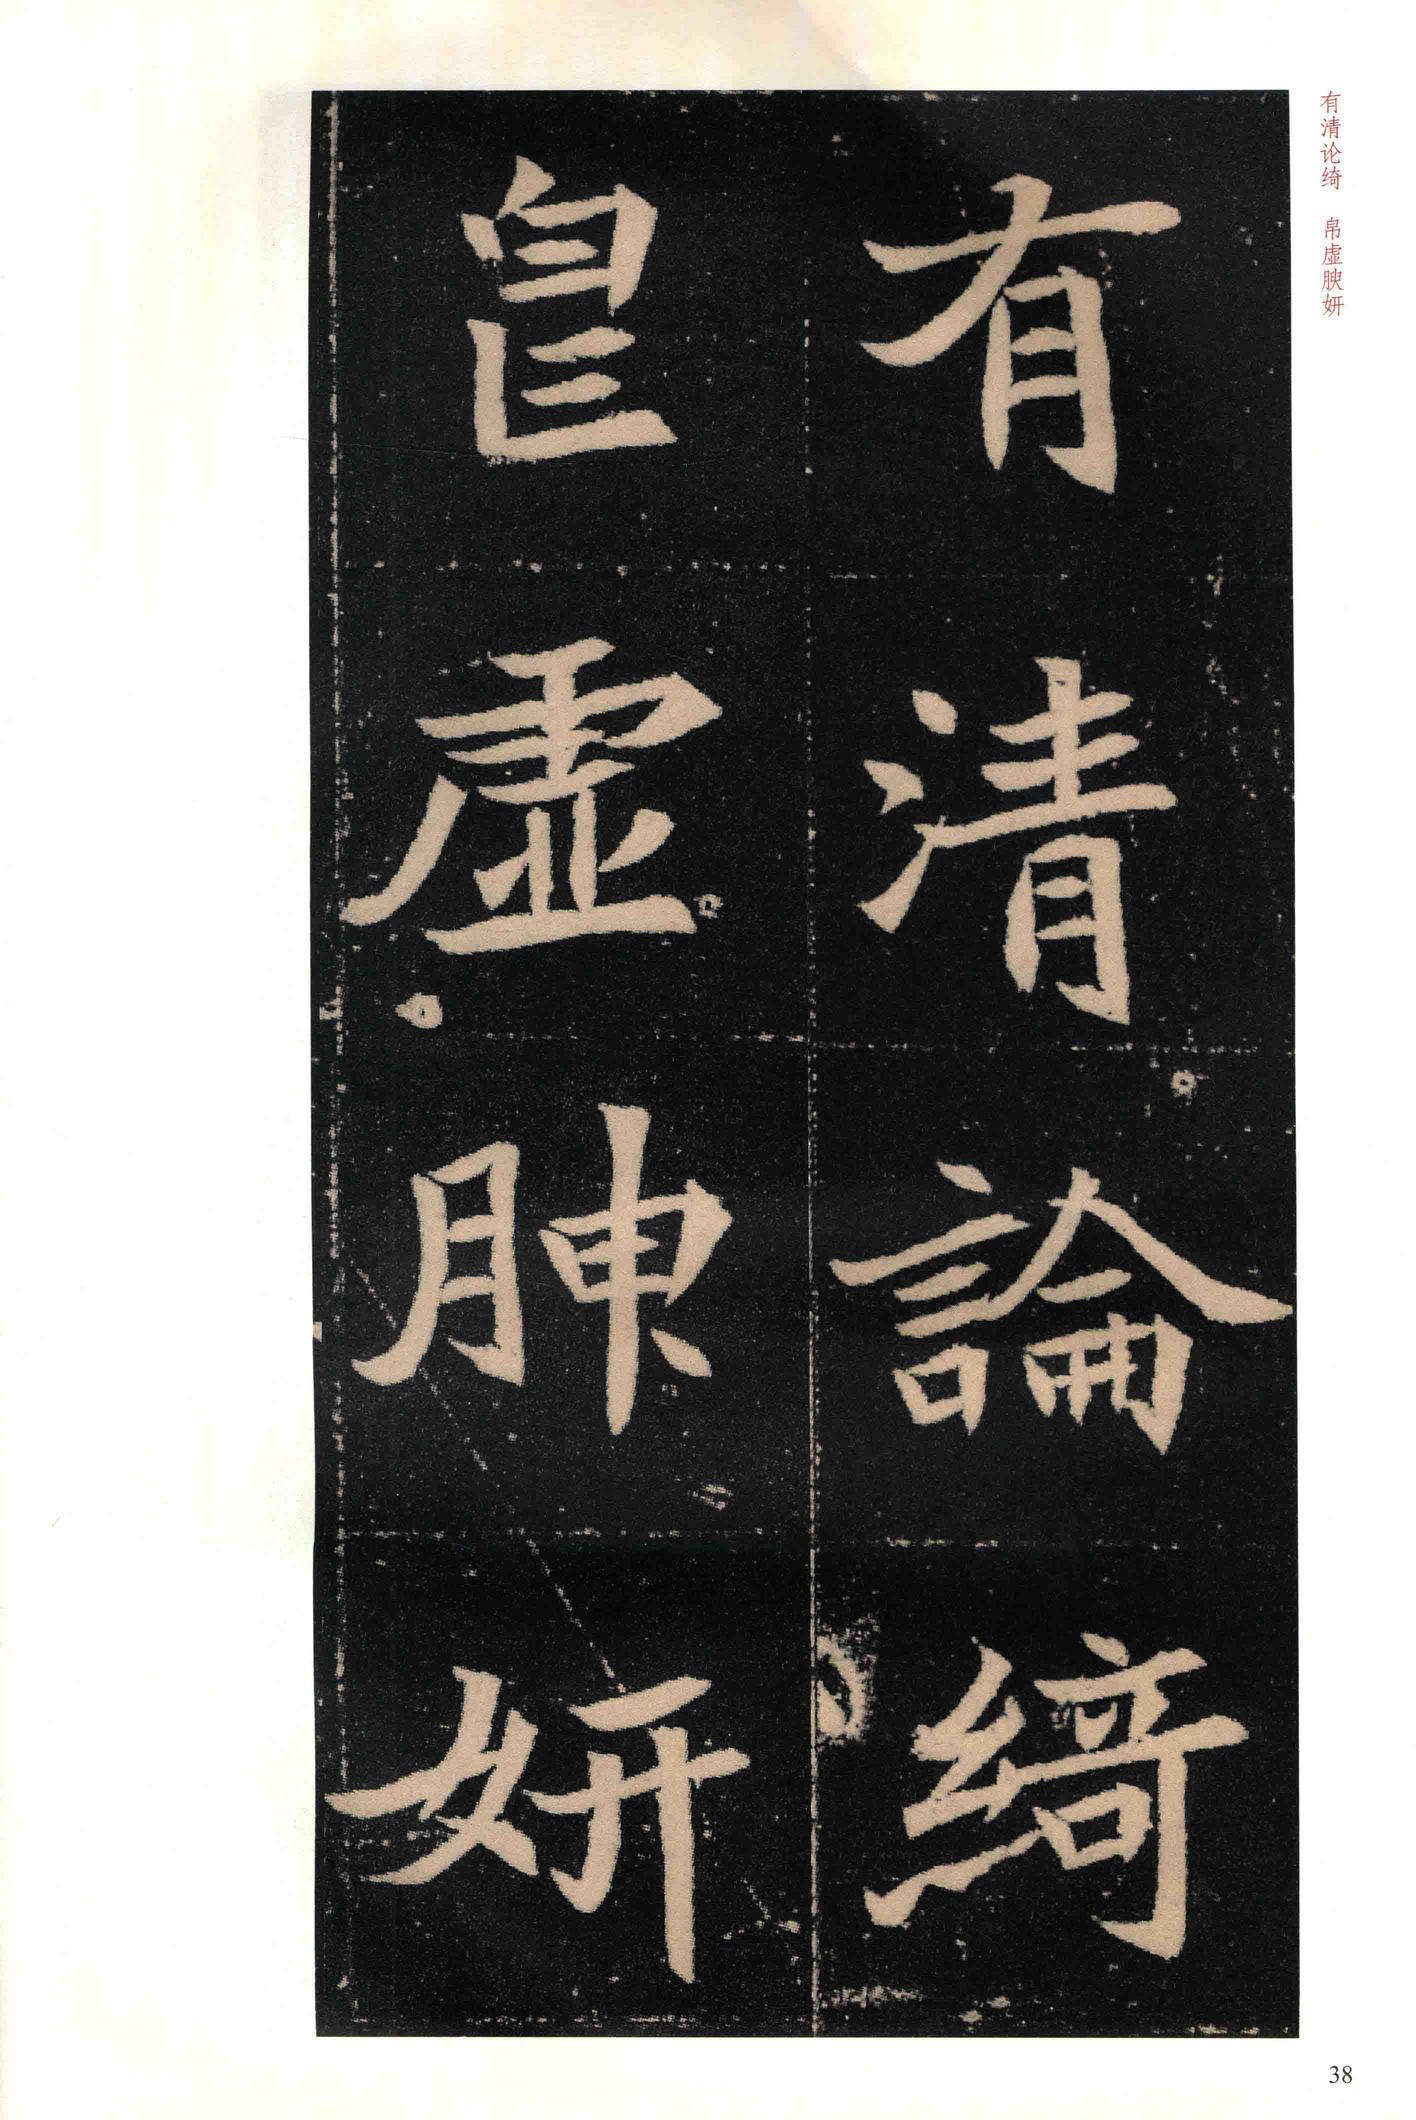 有清论绮 帛虚腴妍
有清論綺
虛腴妍
38